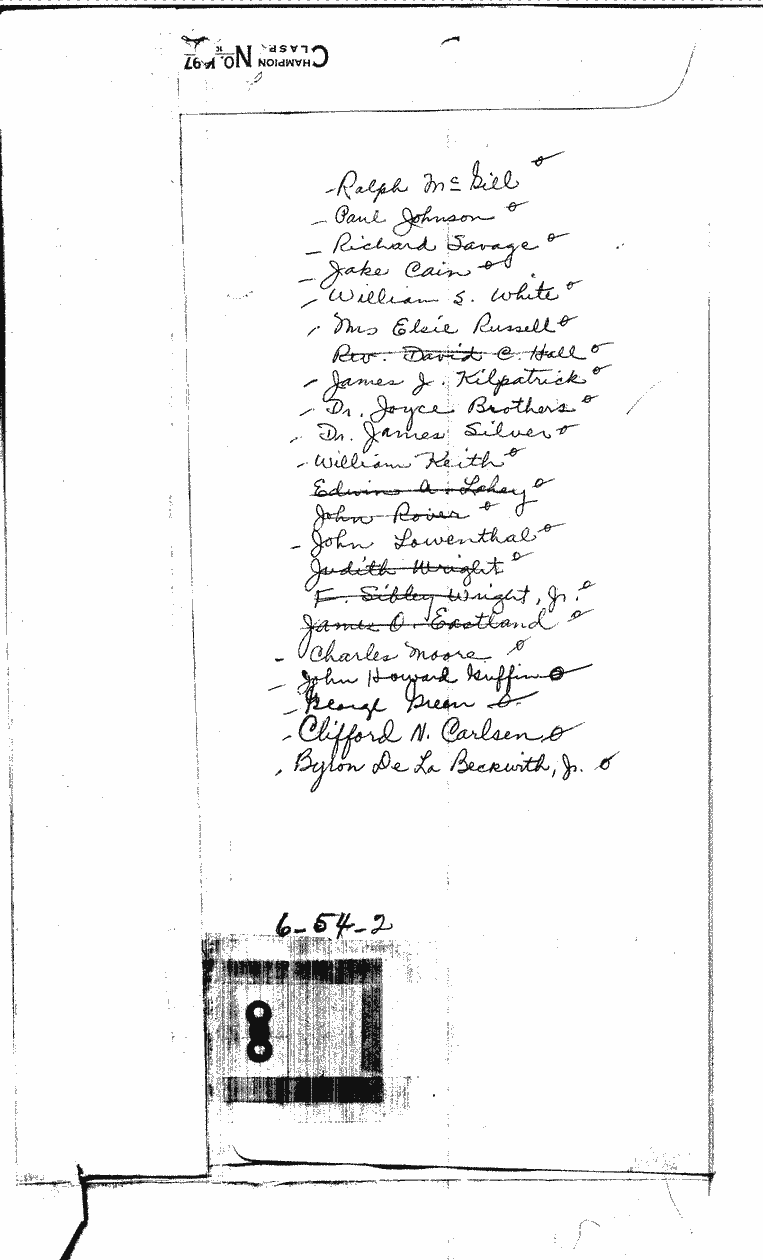 CHAMPION CLASP No. 97
-Ralph McGill
- Paul Johnson
- Richard Savage
- Jake Cain
- William S. White
- Mrs Elsie Russell
Rev. David C. Hall
- James J. Kilpatrick
- Dr. Joyce Brothers
- Dr. James Silver
- William Keith
Edwin A. Lahey
John Rover
- John Lowenthal
Judith Wright
F. Sibley Wright, Jr.
James O. Eastland
- Charles Moore
- John Howard Griffin
- George Green
- Clifford N. Carlsen
- Byron De La Beckwith, Jr.
6-54-2